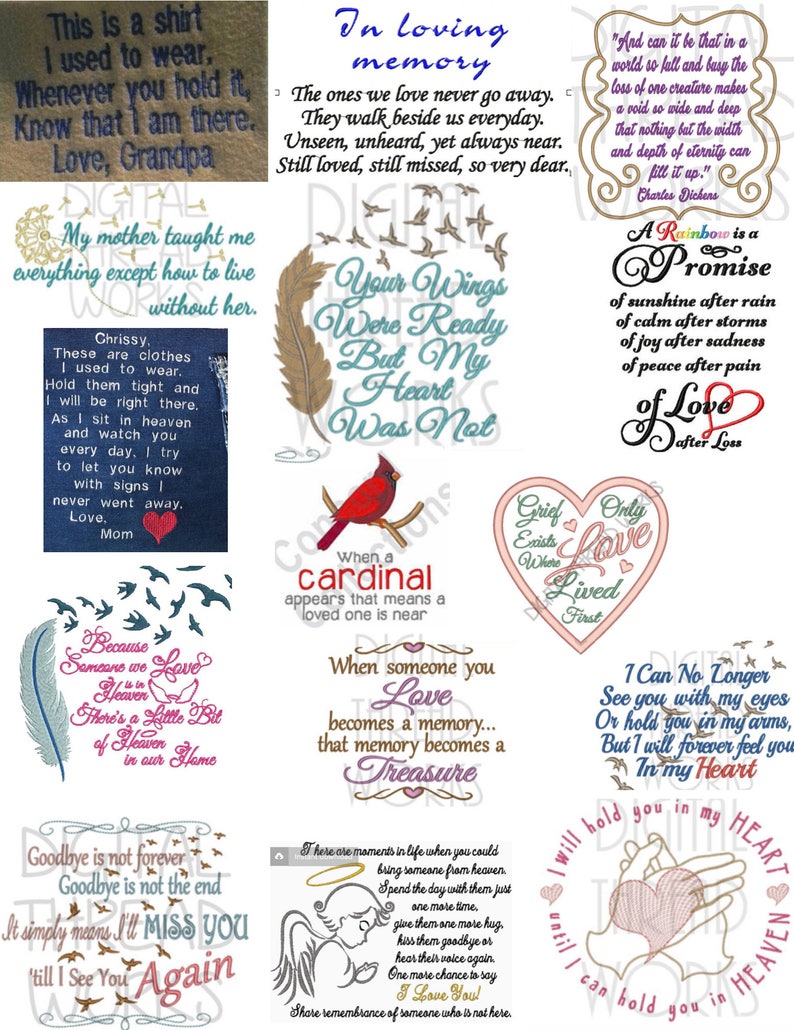 This is a shirt
I used to wear,
Whenever you hold it,
Know that I am there.
Love, Grandpa
In loving
memory
The ones we love never go away.
They walk beside us everyday.
Unseen, unheard, yet always near.
Still loved, still missed, so very dear.
"And can it be that in a
world so full and busy the
loss of one creature makes
a void so wide and deep
that nothing but the width
and depth of eternity can
fill it up."
Charles Dickens
DIGITAL
THREAD
WORKS
My mother taught me
everything except how to live
without her.
DIGITAL
THREAD
WORKS
Your Wings
Were Ready
But My
Heart
Was Not
DIGITAL
THREAD
WORKS
A Rainbow is a
Promise
of sunshine after rain
of calm after storms
of joy after sadness
of peace after pain
of Love
after Loss
Chrissy,
These are clothes
I used to wear.
Hold them tight and
I will be right there.
As I sit in heaven
and watch you
every day, I try
to let you know
with signs I
never went away.
Love,
Mom
When a
cardinal
appears that means a
loved one is near
Grief Only
Exists Love
Where
Lived
First
Because
Someone we Love
is in
Heaven
There's a Little Bit
of Heaven
in our Home
When someone you
Love
becomes a memory...
that memory becomes a
Treasure
DIGITAL
THREAD
WORKS
I Can No Longer
See you with my eyes
Or hold you in my arms,
But I will forever feel you
In my Heart
DIGITAL
THREAD
WORKS
Goodbye is not forever
Goodbye is not the end
It simply means I'll MISS YOU
'till I See You Again
DIGITAL
THREAD
WORKS
There are moments in life when you could
bring someone from heaven.
Spend the day with them just
one more time,
give them one more hug,
kiss them goodbye or
hear their voice again.
One more chance to say
I Love You!
Share remembrance of someone who is not here.
I will hold you in my HEART
until I can hold you in HEAVEN
DIGITAL
THREAD
WORKS